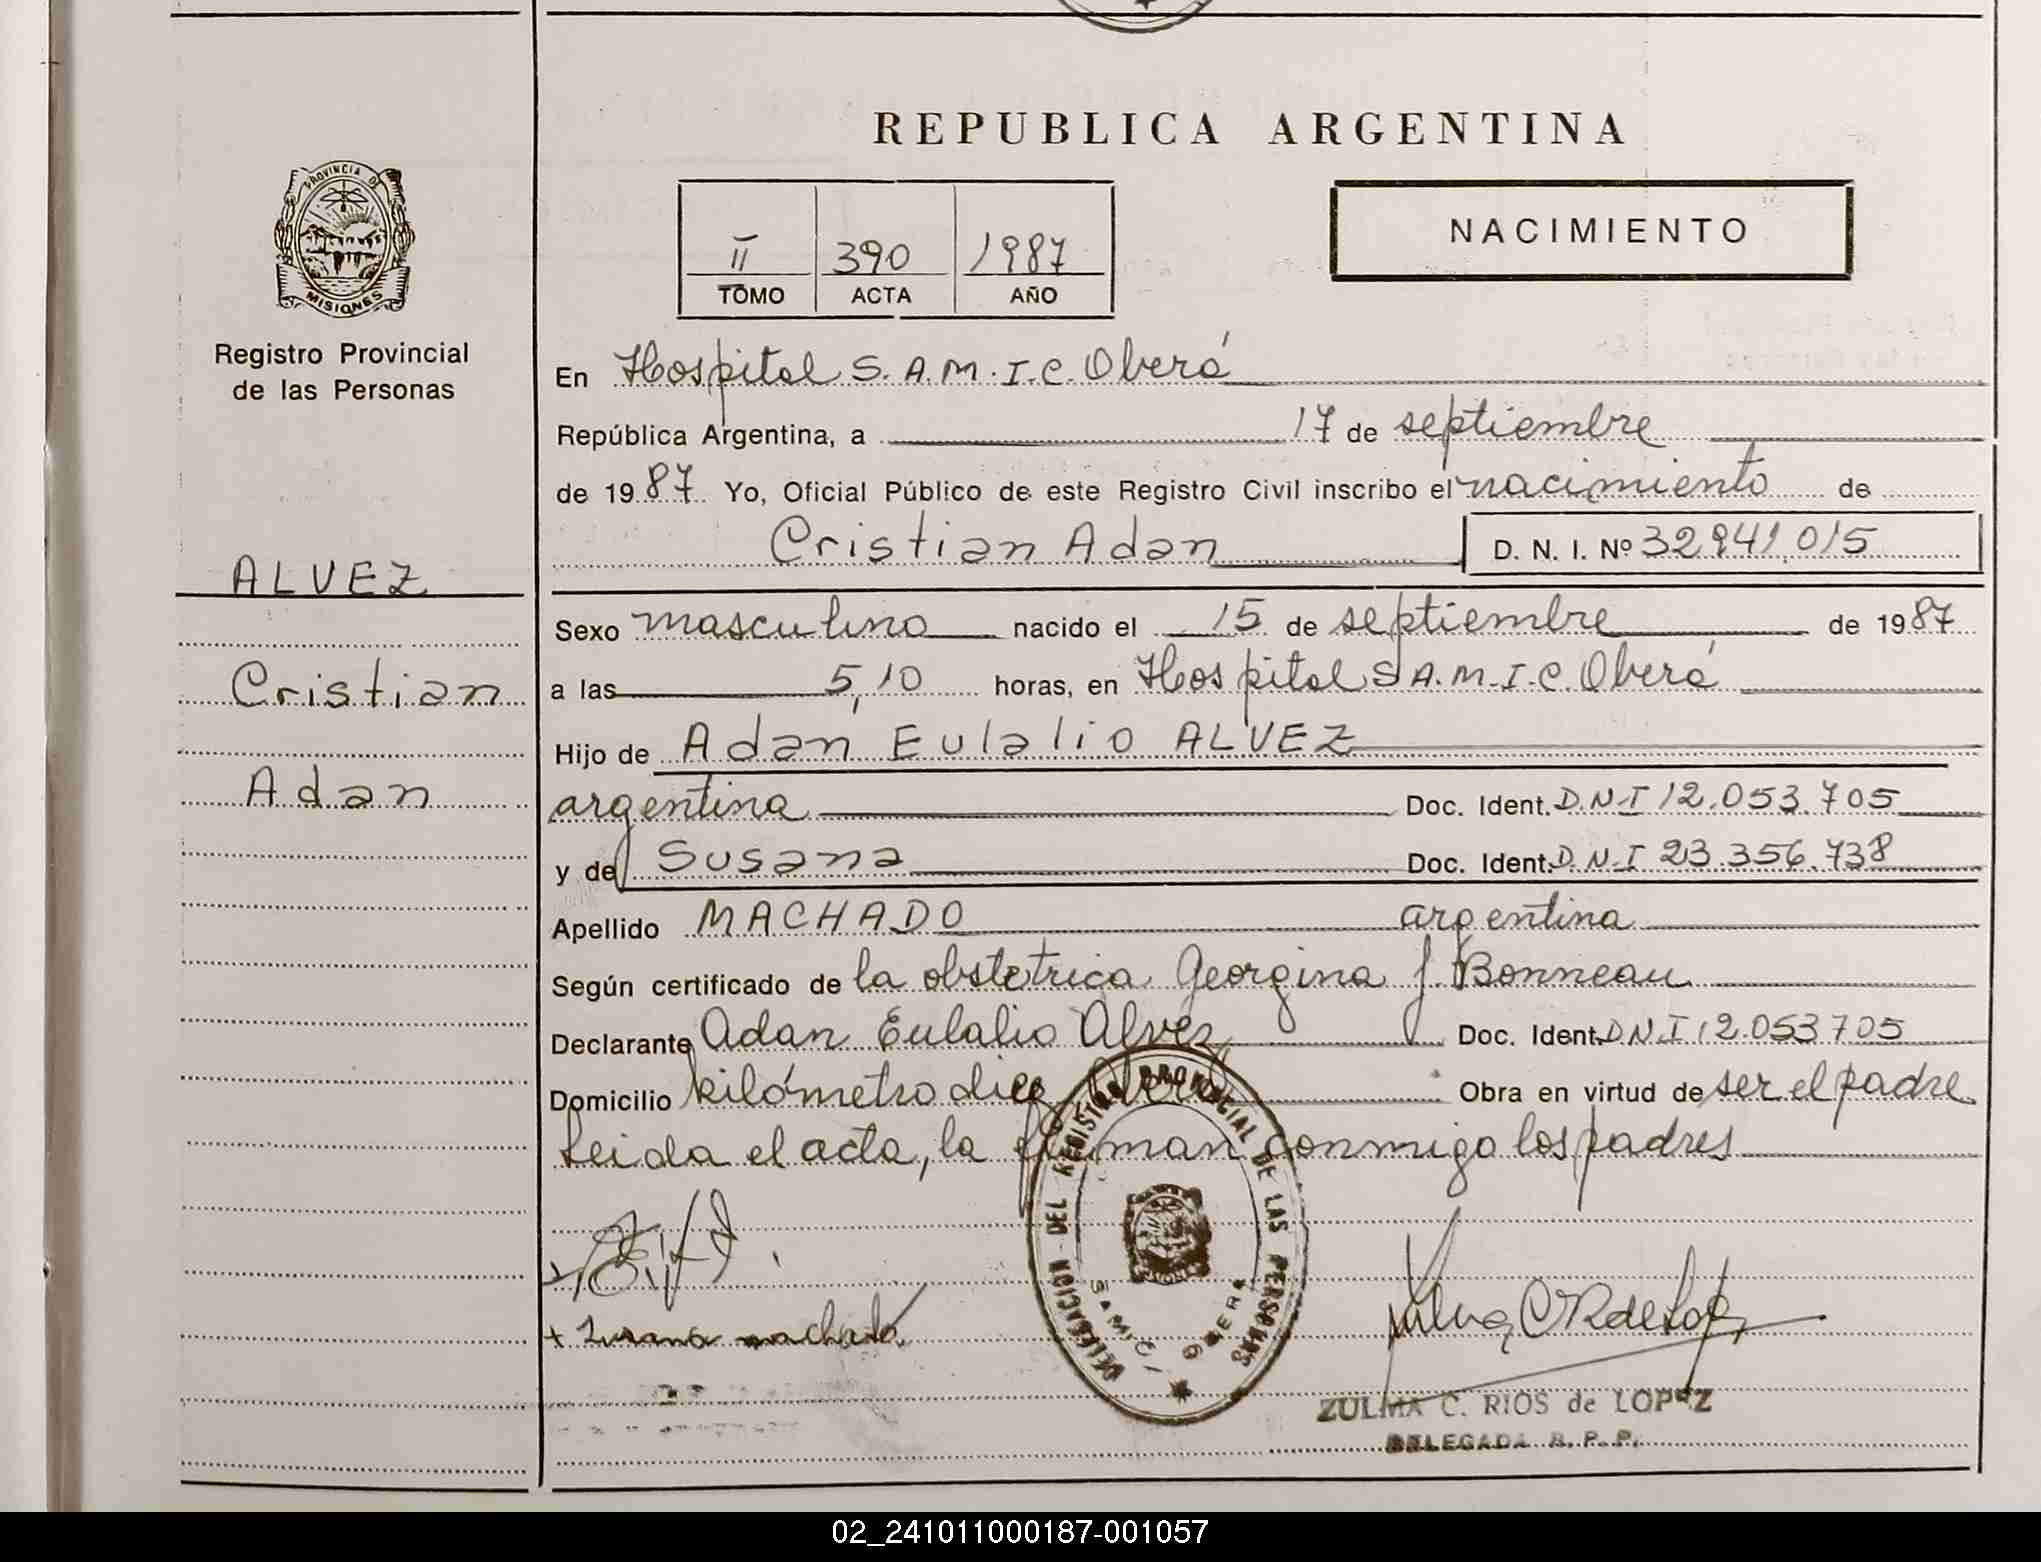 REPUBLICA ARGENTINA
PROVINCIA DE
MISIONES
Registro Provincial
de las Personas
II 390 1987
TOMO ACTA AÑO
NACIMIENTO
ALVEZ
Cristian
Adan
En Hospital S.A.M.I.C. Oberá
República Argentina, a 17 de septiembre
de 1987 Yo, Oficial Público de este Registro Civil inscribo el nacimiento de
Cristian Adan D. N. I. Nº 32.941.015
Sexo masculino nacido el 15 de septiembre de 1987
a las 5,10 horas, en Hospital S.A.M.I.C. Oberá
Hijo de Adán Eulalio ALVEZ
argentina Doc. Ident. D.N.I 12.053.705
y de Susana Doc. Ident. D.N.I 23.356.738
Apellido MACHADO argentina
Según certificado de la obstetrica Georgina J. Bonneau
Declarante Adan Eulalio Alvez Doc. Ident. D.N.I 12.053705
Domicilio kilómetro diez Oberá Obra en virtud de ser el padre
Leida el acta, la firman conmigo los padres
DELEGACION DEL REGISTRO PROVINCIAL DE LAS PERSONAS
S.A.M.I.C. OBERA
+ Susana machado
Zulma C R de Lopez
ZULMA C. RIOS de LOPEZ
DELEGADA R. P. P.
02_241011000187-001057